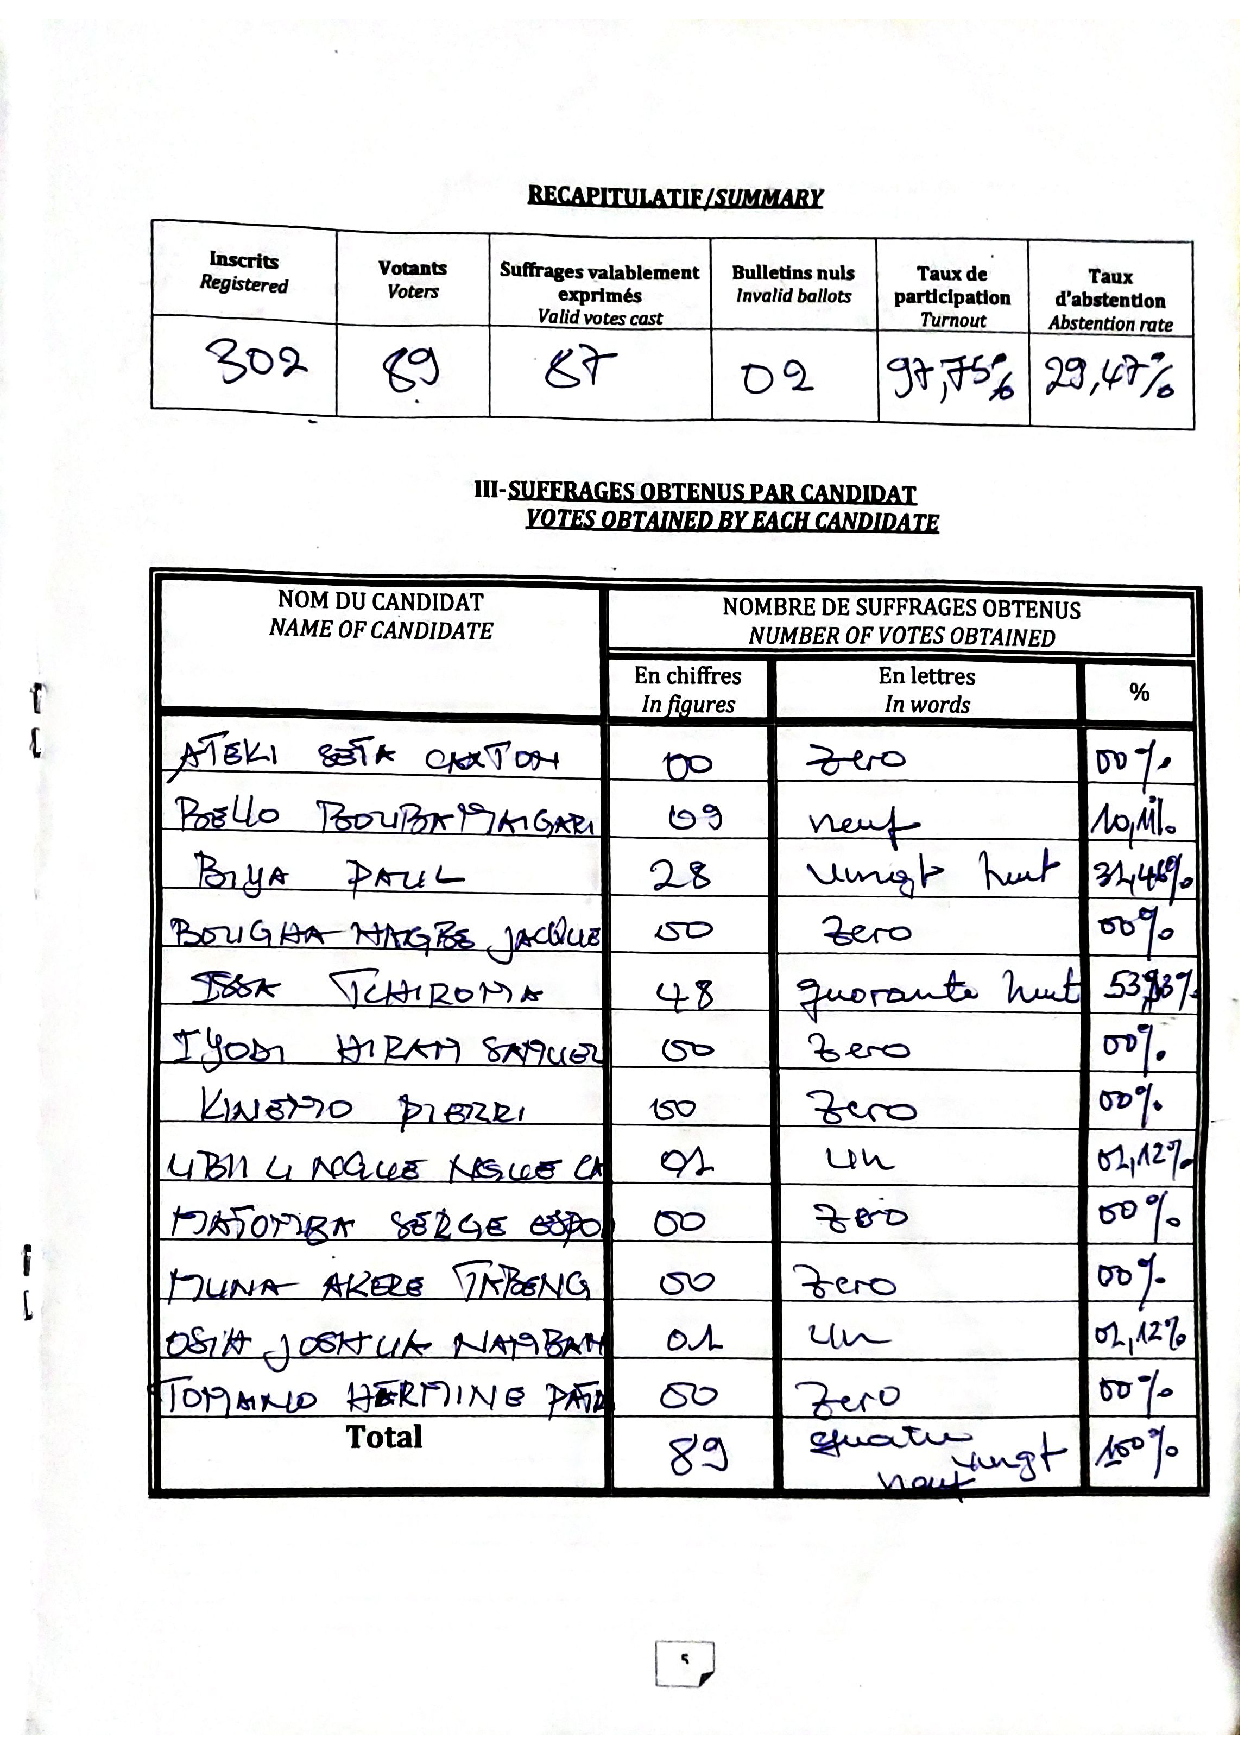 RECAPITULATIF/SUMMARY
Inscrits Registered
Votants Voters
Suffrages valablement exprimés Valid votes cast
Bulletins nuls Invalid ballots
Taux de participation Turnout
Taux d'abstention Abstention rate
302 89 87 02 97,75% 29,47%
III-SUFFRAGES OBTENUS PAR CANDIDAT
VOTES OBTAINED BY EACH CANDIDATE
NOM DU CANDIDAT
NAME OF CANDIDATE
NOMBRE DE SUFFRAGES OBTENUS
NUMBER OF VOTES OBTAINED
En chiffres In figures
En lettres In words
%
ATEKI SETA CAXTON 00 Zero 00%
BELLO BOUBA MAIGARI 09 neuf 10,11%
BIYA PAUL 28 vingt huit 31,46%
BOUGHA HAGBE JACQUE 00 Zero 00%
ISSA TCHIROMA 48 quarante huit 53,93%
IYODI HIRAM SAMUEL 00 Zero 00%
KINEMO PIERRI 00 Zero 00%
LIBII LI NGUE NGUE CA 01 un 01,12%
MATOMBA SERGE ESPO 00 Zero 00%
MUNA AKERE TABENG 00 Zero 00%
OSIH JOSHUA NAMBAN 01 un 01,12%
TOMAINO HERMINE PATR 00 Zero 00%
Total 89 quatre vingt neuf 100%
5